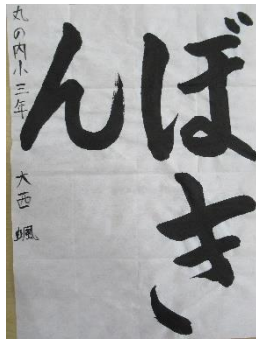 ぼき
ん
丸の内小三年 大西 颯